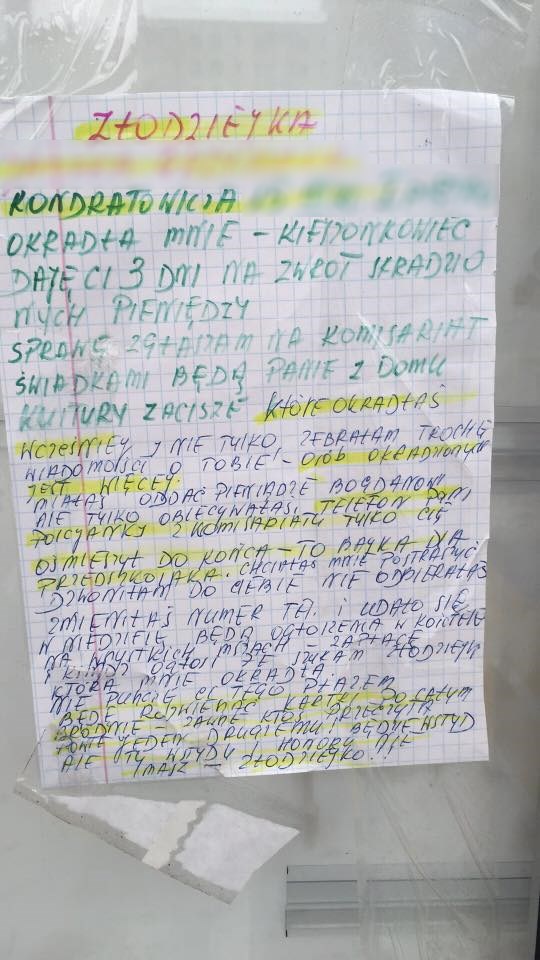 ZŁODZIEJKA
KONDRATOWICZA
OKRADŁA MNIE - KIESZONKOWIEC
DAJĘ CI 3 DNI NA ZWROT SKRADZIO
NYCH PIENIĘDZY
SPRAWĘ ZGŁASZAM NA KOMISARIAT
ŚWIADKAMI BĘDĄ PANIE Z DOMU
KULTURY ZACISZE KTÓRE OKRADŁAŚ
WCZEŚNIEJ I NIE TYLKO ZEBRAŁAM TROCHĘ
WIADOMOŚCI O TOBIE - OSÓB OKRADZIONYCH
JEST WIĘCEJ.
MIAŁAŚ ODDAĆ PIENIĄDZE BOGDANOWI
NIE TYLKO OBIECYWAŁAŚ. TELEFON DO MNIE
POLICYANKI Z KOMISARIATU TYLKO CIĘ
OŚMIESZYŁ DO KOŃCA - TO BAJKA DLA
PRZEDSZKOLAKA. CHCIAŁAŚ MNIE POSTRASZYĆ
DZWONIŁAM DO CIEBIE NIE ODBIERAŁAŚ
ZMIENIŁAŚ NUMER TEL. I UDAŁO SIĘ
W NIEDZIELĘ BĘDĄ OGŁOSZENIA W KOŚCIELE
NA WSZYSTKICH MSZACH - ZAPŁACĘ
I KSIĄDZ OGŁOSI ŻE SZUKAM ZŁODZIEJKI
KTÓRA MNIE OKRADŁA
NIE PUSZCZĘ CI TEGO PŁAZEM
BĘDĘ ROZWIESZAĆ KARTKI PO CAŁYM
BRÓDNIE - ZAWSZE KTOŚ PRZECZYTA
POWIE JEDEN DRUGIEMU! BĘDZIE WSTYD
ALE TY WSTYDU I HONORU NIE
MASZ - ZŁODZIEJKO!!